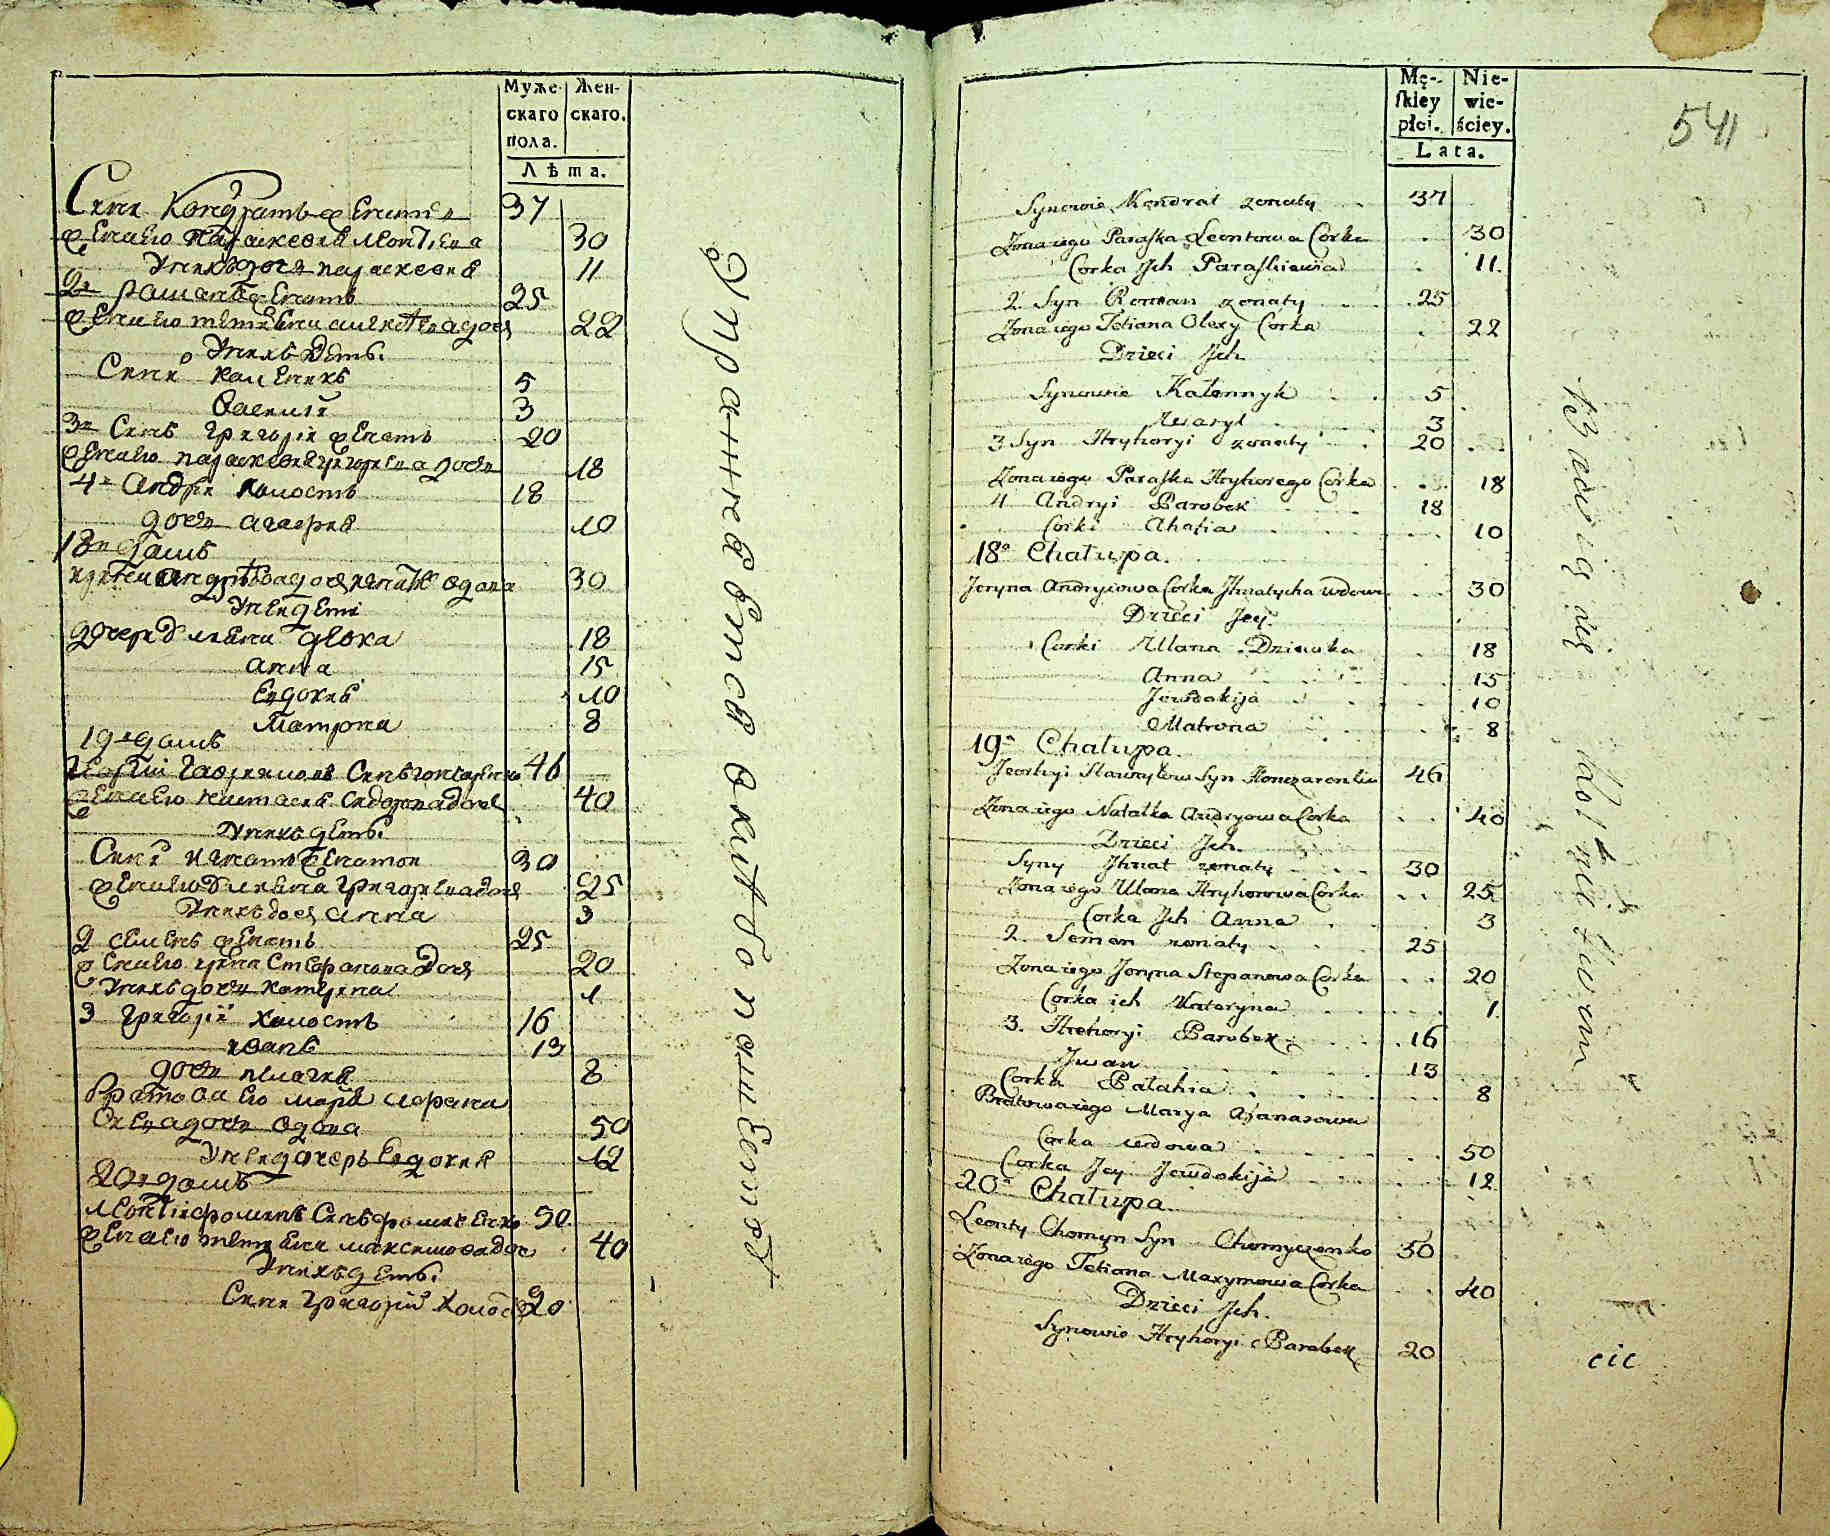 Муже-
скаго
пола.
Жен-
скаго.
Лѣта.
Сини Кондратъ женатъ 37
жена его Параскевия Леонтиева 30
У нихъ дочь параскевия 11
2й романъ женатъ 25
жена его татияна алексѣева дочь 22
У нихъ дети.
Сини каленикъ 5
Василий 3
3й Синъ григорий женатъ 20
жена его параскевия григориева дочь 18
4й андрей холостъ 18
дочь агафия 10
18й домъ
андреева дочь вдова 30
У неи дети
дочери улияна девка 18
анна 15
Евдокия 10
Матрона 8
19й домъ
Георгий гаврииловъ Синъ гончаренко 46
жена его дочь 40
У нихъ дети.
Сини игнатъ женатъ 30
жена его улияна григориева дочь 25
У нихъ дочь анна 3
2 семенъ женатъ 25
жена его ирина Стефанова дочь 20
У нихъ дочь катерина 1
3 григорий холостъ 16
иванъ 13
дочь пелагия 8
братова его мария
дочь вдова 50
У неи дочерь Евдокия 12
20й домъ
леонтий фоминъ Синъ 50.
жена его татияна максимова дочь 40
У нихъ дети.
Сини григорий холостъ 20
Mę-
skiey
płci.
Nie-
wie-
ściey.
Lata.
541
Synowie Kondrat zonaty 37
Zona iego Paraska Leontowa Corka 30
Corka Jch Paraskiewia 11.
2. Syn Roman zonaty 25
Zona iego Tetiana Olexy Corka 22
Dzieci Jch
Synowie Kalennyk 5
Wasyl 3
3 Syn Hryhoryi zonaty 20
Zona iego Paraska Hryhorego Corka 18
4 Andryi Parobek 18
Corki Ahafia 10
18a Chałupa.
Jeryna Andryiowa Corka Jhnatycha wdowa 30
Dzieci Jey.
Corki Ulana Dziewka 18
Anna 15
Jewdokija 10
Matrona 8
19a Chałupa.
Jeorhyi Hawryłow Syn Honczarenko 46
Zona iego Natalka Andryowa Corka 40
Dzieci Jch
Syny Jhnat zonaty 30
Zona iego Ulana Hryhorowa Corka 25
Corka Jch Anna 3
2. Semen zonaty 25
Zona iego Jeryna Stepanowa Corka 20
Corka ich Kataryna 1.
3. Hrehoryi Parobek 16
Jwan 13
Corka Palahia 8
Bratowa iego Marya Afanasowa
Corka wdowa 50
Corka Jey Jewdokija 12
20a Chałupa.
Leonty Chomyn Syn Chomyczenko 50
Zona iego Tetiana Maxymowa Corka 40
Dzieci Jch.
Synowie Hryhoryi Parobek 20
cic